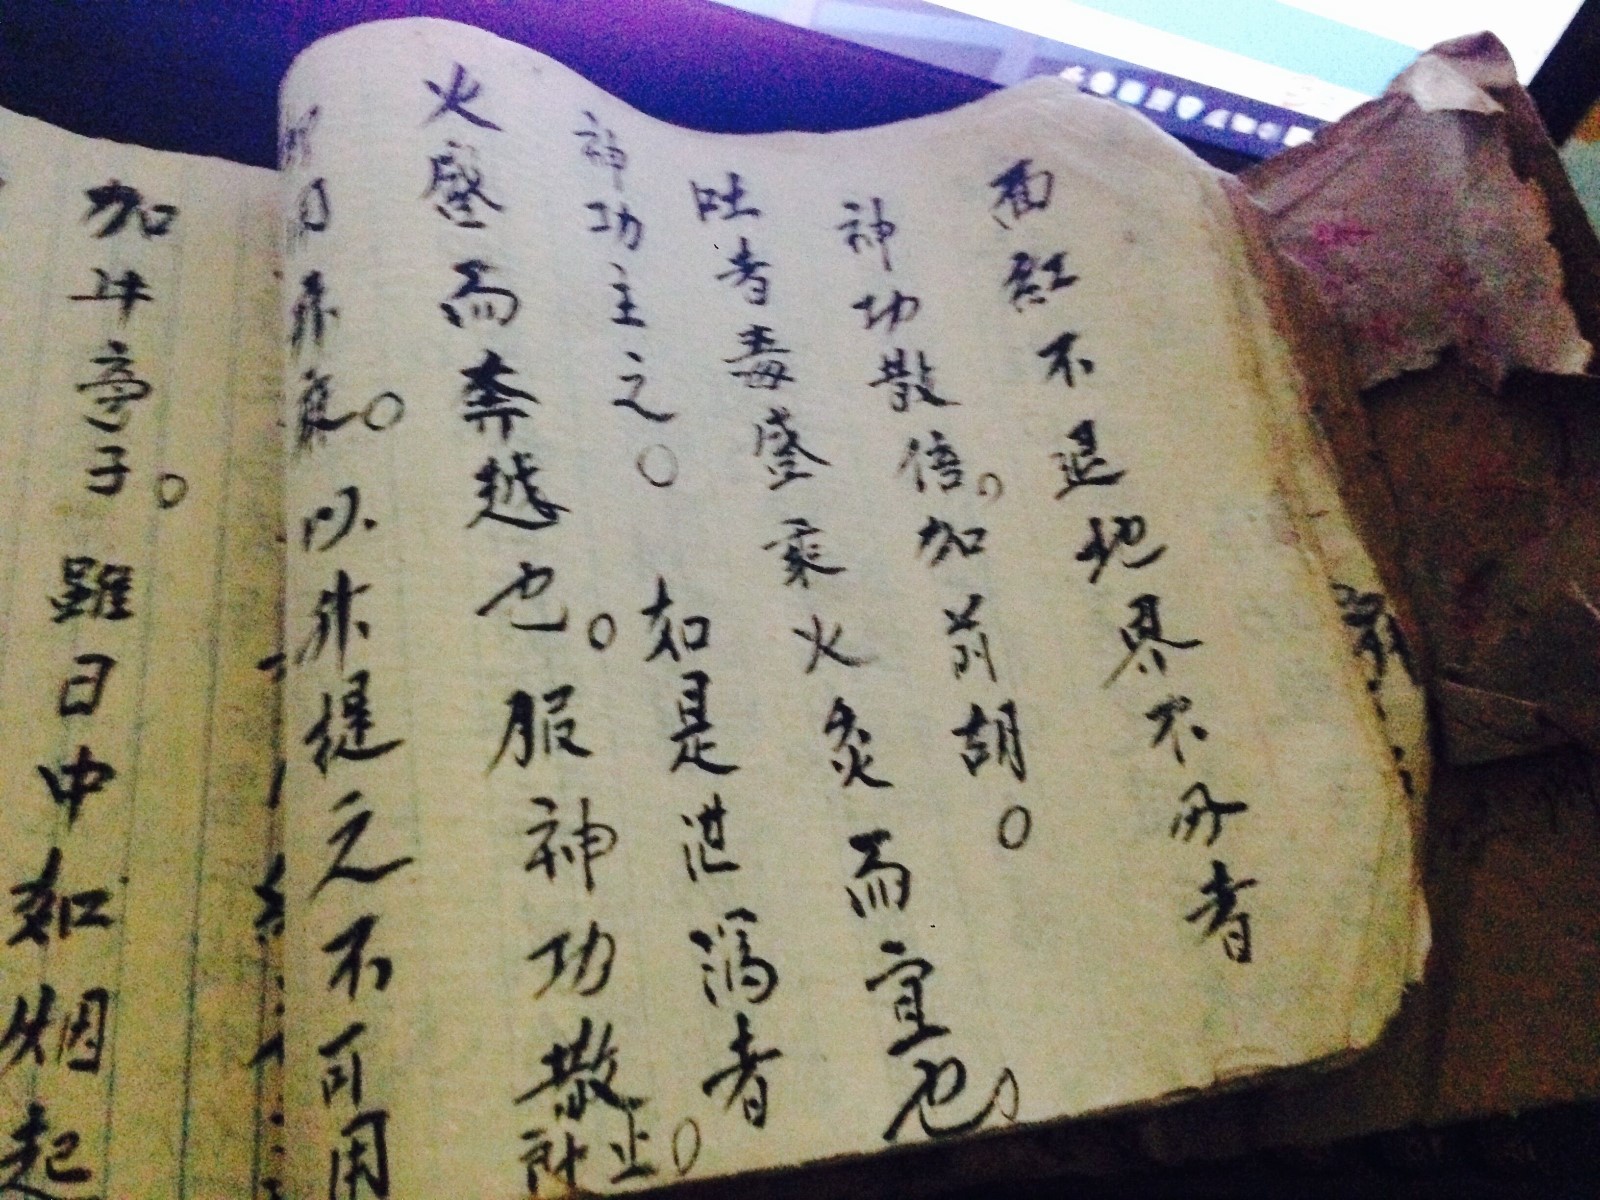 面紅不退地界不分者
神功散倍。加前胡。
吐者毒盛乘火炎而宜也。
神功主之。如是泄瀉者
火盛而奔越也。服神功散
即止。
以非緹之不可用
加斗亭子。雖日中如烟起